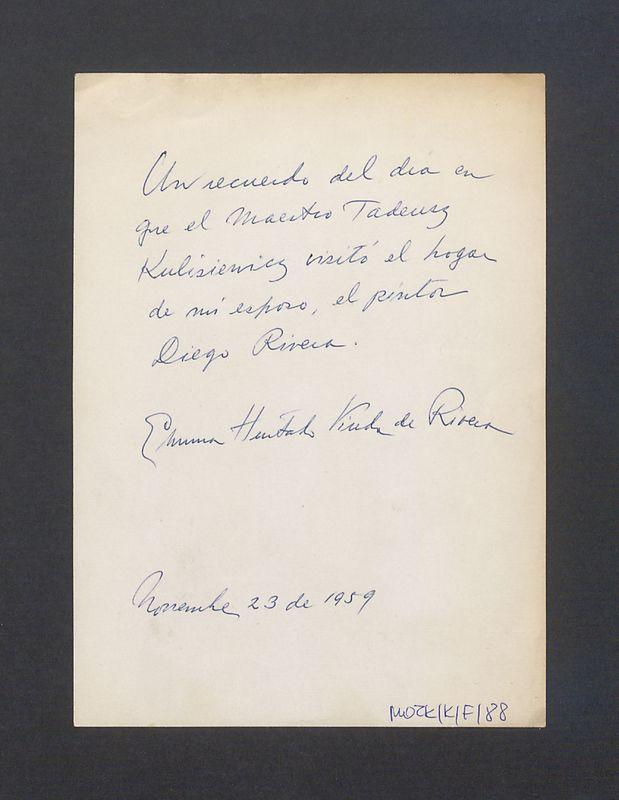 Un recuerdo del día en
que el Maestro Tadeusz
Kulisiewicz visitó el hogar
de mi esposo, el pintor
Diego Rivera.
Emma Hurtado Viuda de Rivera
Noviembre 23 de 1959
MOZK/K/F/88